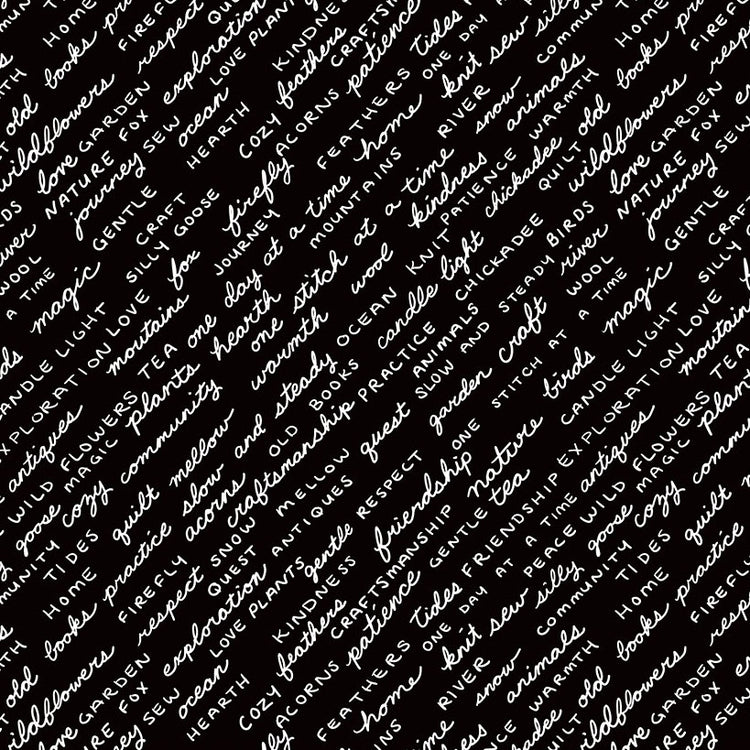 HOME
FIREFLY
LOVE PLANTS
KINDNESS
CRAFTSMANSHIP
tides
silly
COMMUNITY
HOME
FIREFLY
books practice
respect
exploration
COZY feathers
patience
ONE DAY AT
knit sew
old books
WARMTH
old
wildflowers
love GARDEN
NATURE FOX
journey SEW
ocean
HEARTH
ACORNS
FEATHERS
home
RIVER
snow
animals
WARMTH
QUILT old
wildflowers
love GARDEN
NATURE FOX
journey SEW
GENTLE
CRAFT
SILLY GOOSE
firefly
JOURNEY
at a time
MOUNTAINS
at a time
kindness
PATIENCE
chickadee
BIRDS
river
WOOL
A TIME
magic
GENTLE
fox
one day
hearth
one stitch
wool
KNIT
OCEAN
candle light
CHICKADEE
STEADY BIRDS
river
WOOL
AT A TIME
magic
CANDLE LIGHT
EXPLORATION LOVE
moutains
TEA
plants
warmth
BOOKS
PRACTICE
ANIMALS
SLOW AND
craft
STITCH AT
birds
CANDLE LIGHT
EXPLORATION LOVE
moutains
TEA
antiques
WILD FLOWERS
MAGIC
goose cozy
community
mellow
slow and steady
OLD
acorns
craftsmanship
quest
garden
ONE
nature
FRIENDSHIP
antiques
PEACE WILD FLOWERS
MAGIC
goose cozy
COMMUNITY
TIDES
HOME
quilt
practice
SNOW
MELLOW
QUEST
ANTIQUES
RESPECT
friendship
tea
AT A TIME
silly
COMMUNITY
TIDES
HOME
quilt
books practice
FIREFLY
respect
exploration
LOVE PLANTS
gentle
KINDNESS
CRAFTSMANSHIP
GENTLE
tides
ONE DAY
knit sew
old books practice
FIREFLY
WARMTH
old
wildflowers
love GARDEN
NATURE FOX
journey SEW
ocean
HEARTH
COZY feathers
ACORNS
patience
FEATHERS
home
RIVER
snow
animals
WARMTH
QUILT old
wildflowers
love GARDEN
NATURE FOX
journey SEW